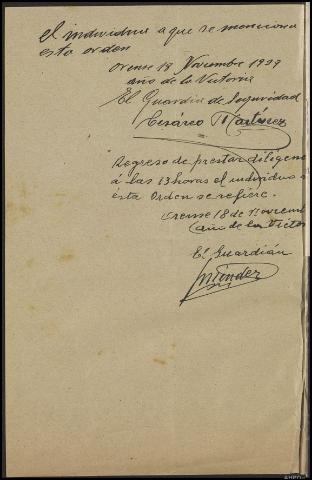 el individuo a que se menciona
esta orden
Orense 18 Noviembre 1939
año de la Victoria
El Guardia de Seguridad
Cesáreo Martínez
Regreso de prestar diligenc
á las 13 horas el individuo a
ésta Orden se refiere.
Orense 18 de Noviemb
(año de la Victor
El Guardián
Méndez